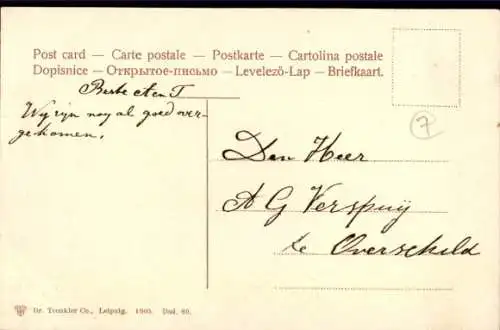 Post card — Carte postale — Postkarte — Cartolina postale
Dopisnice — Открытое-письмо — Levelező-Lap — Briefkaart.
Beste A en T
Wij zijn nog al goed over-
gekomen,
7
Den Heer
A G Verspuy
te Overschild
Dr. Trenkler Co., Leipzig. 1905. Dud. 60.